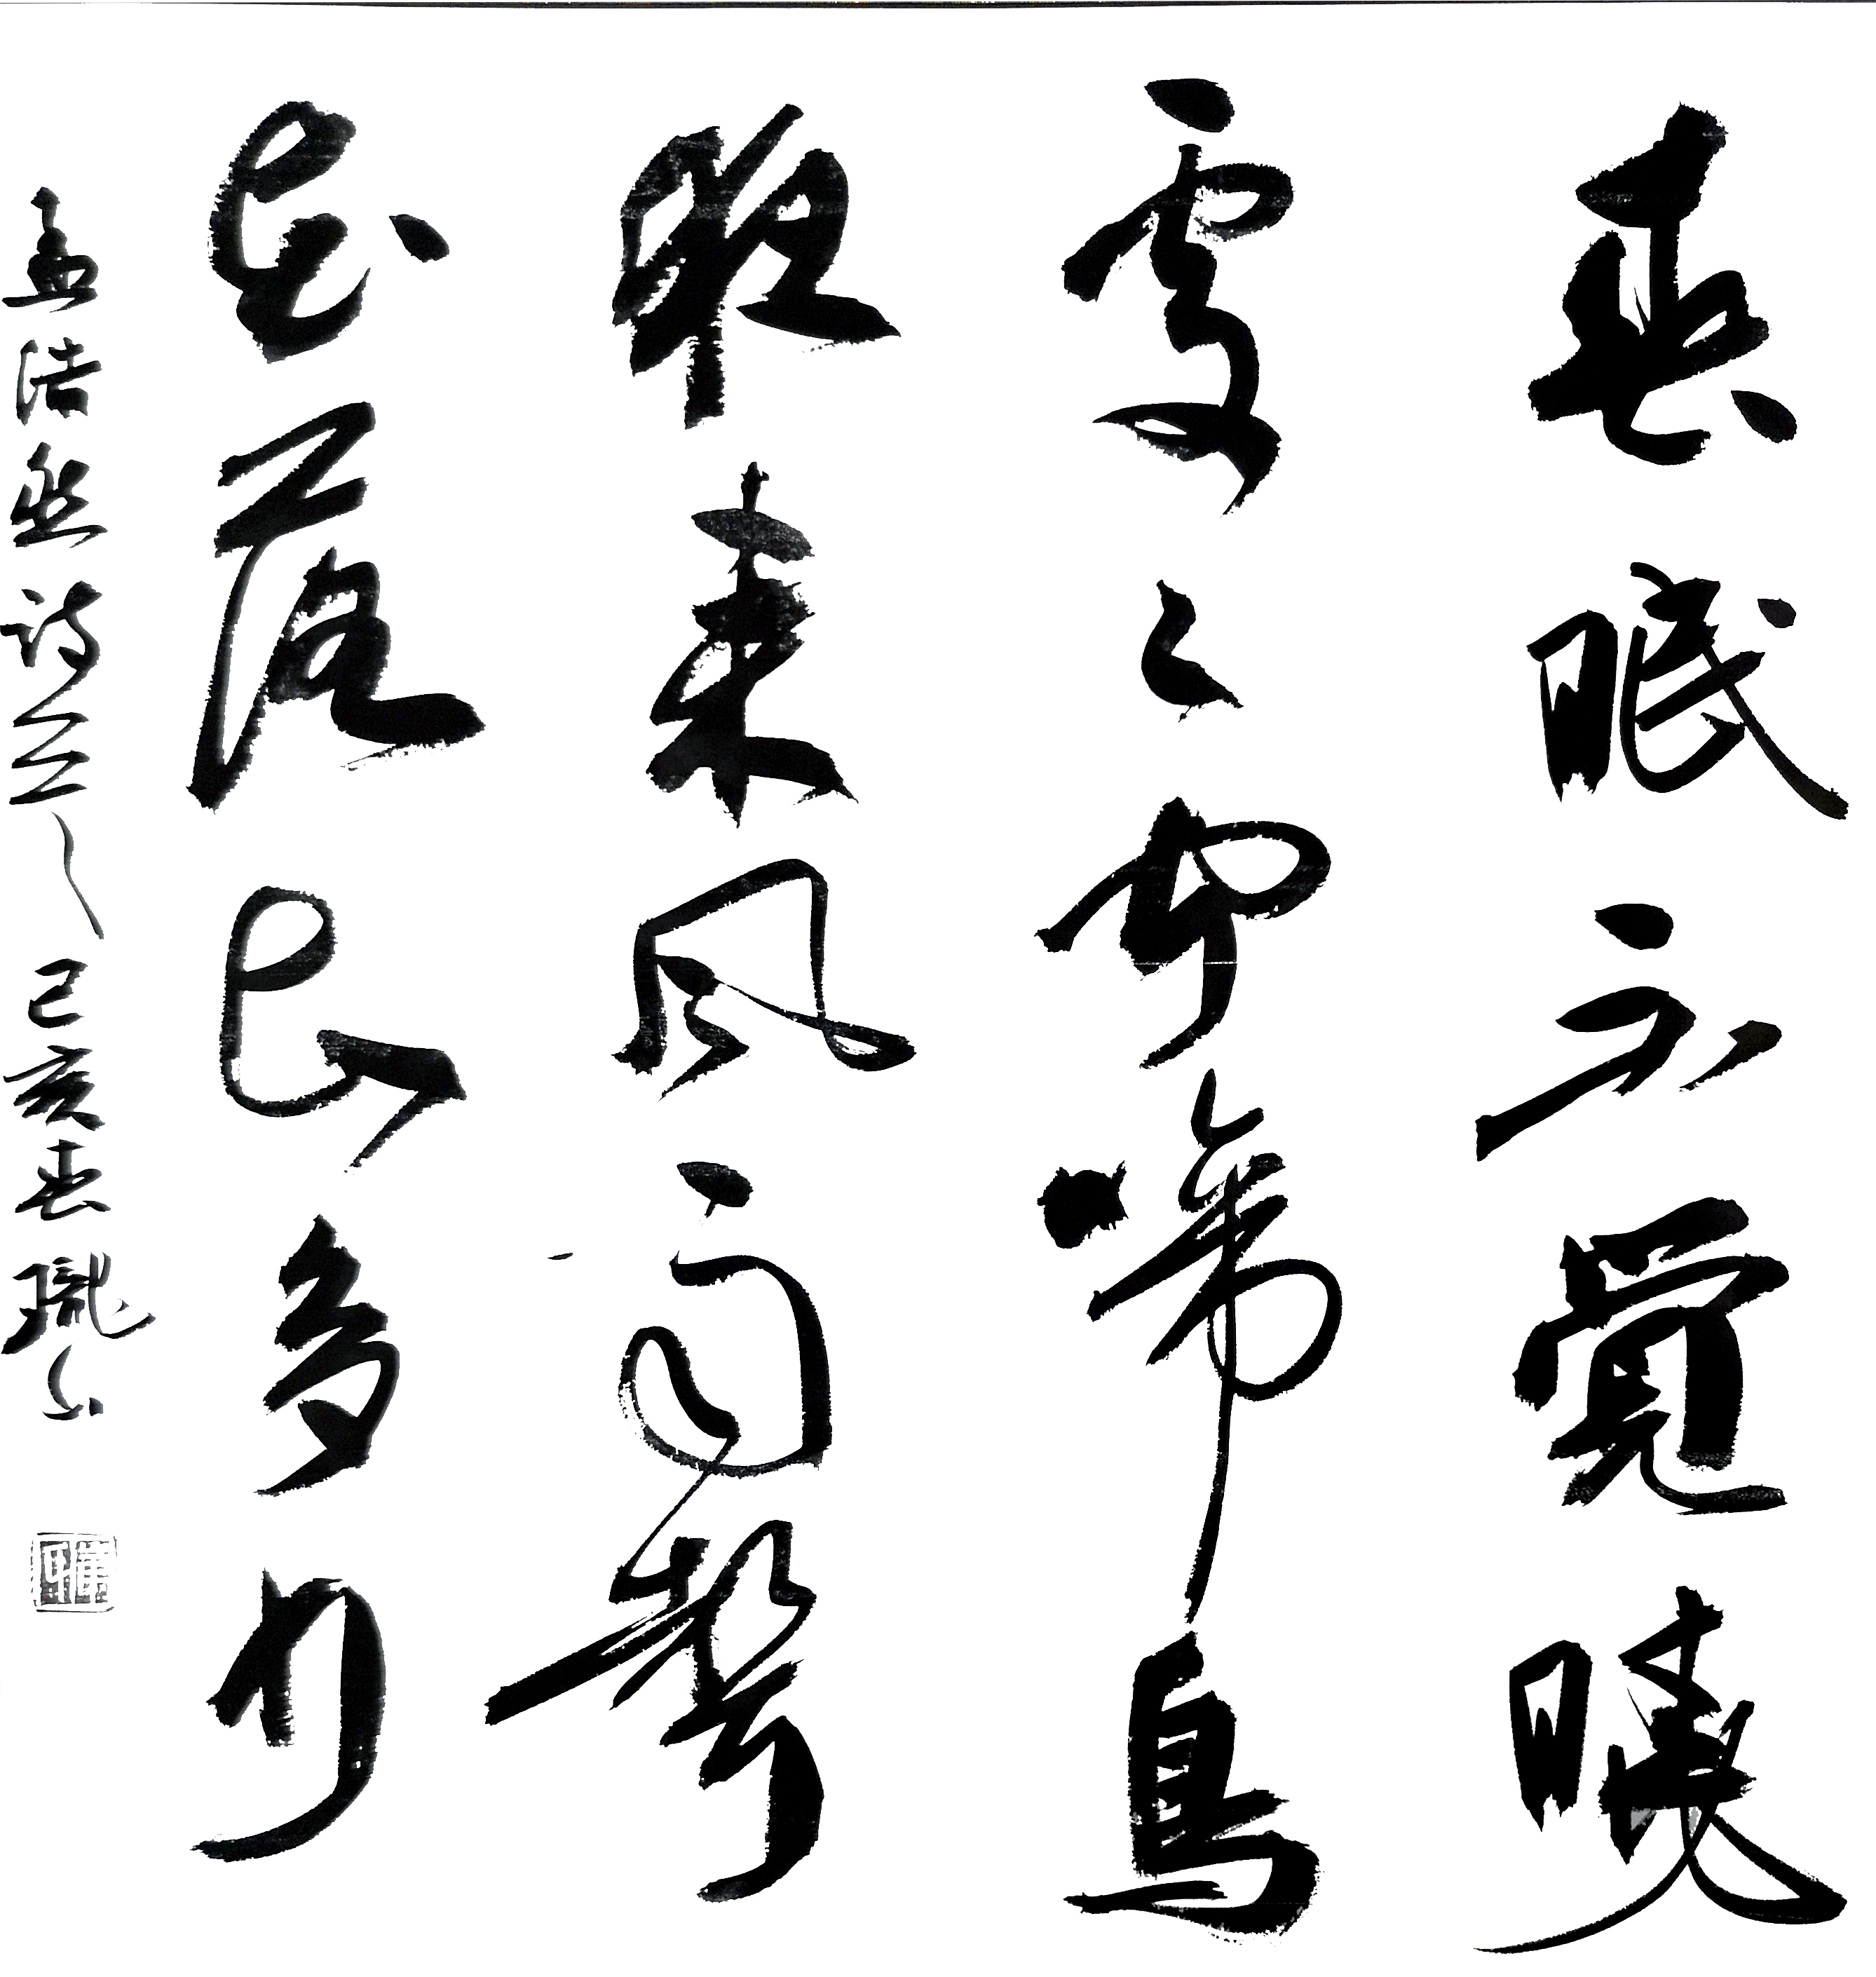 春眠不覺曉
處々聞啼鳥
夜来風雨聲
花落知多少
孟浩然詩 己亥春